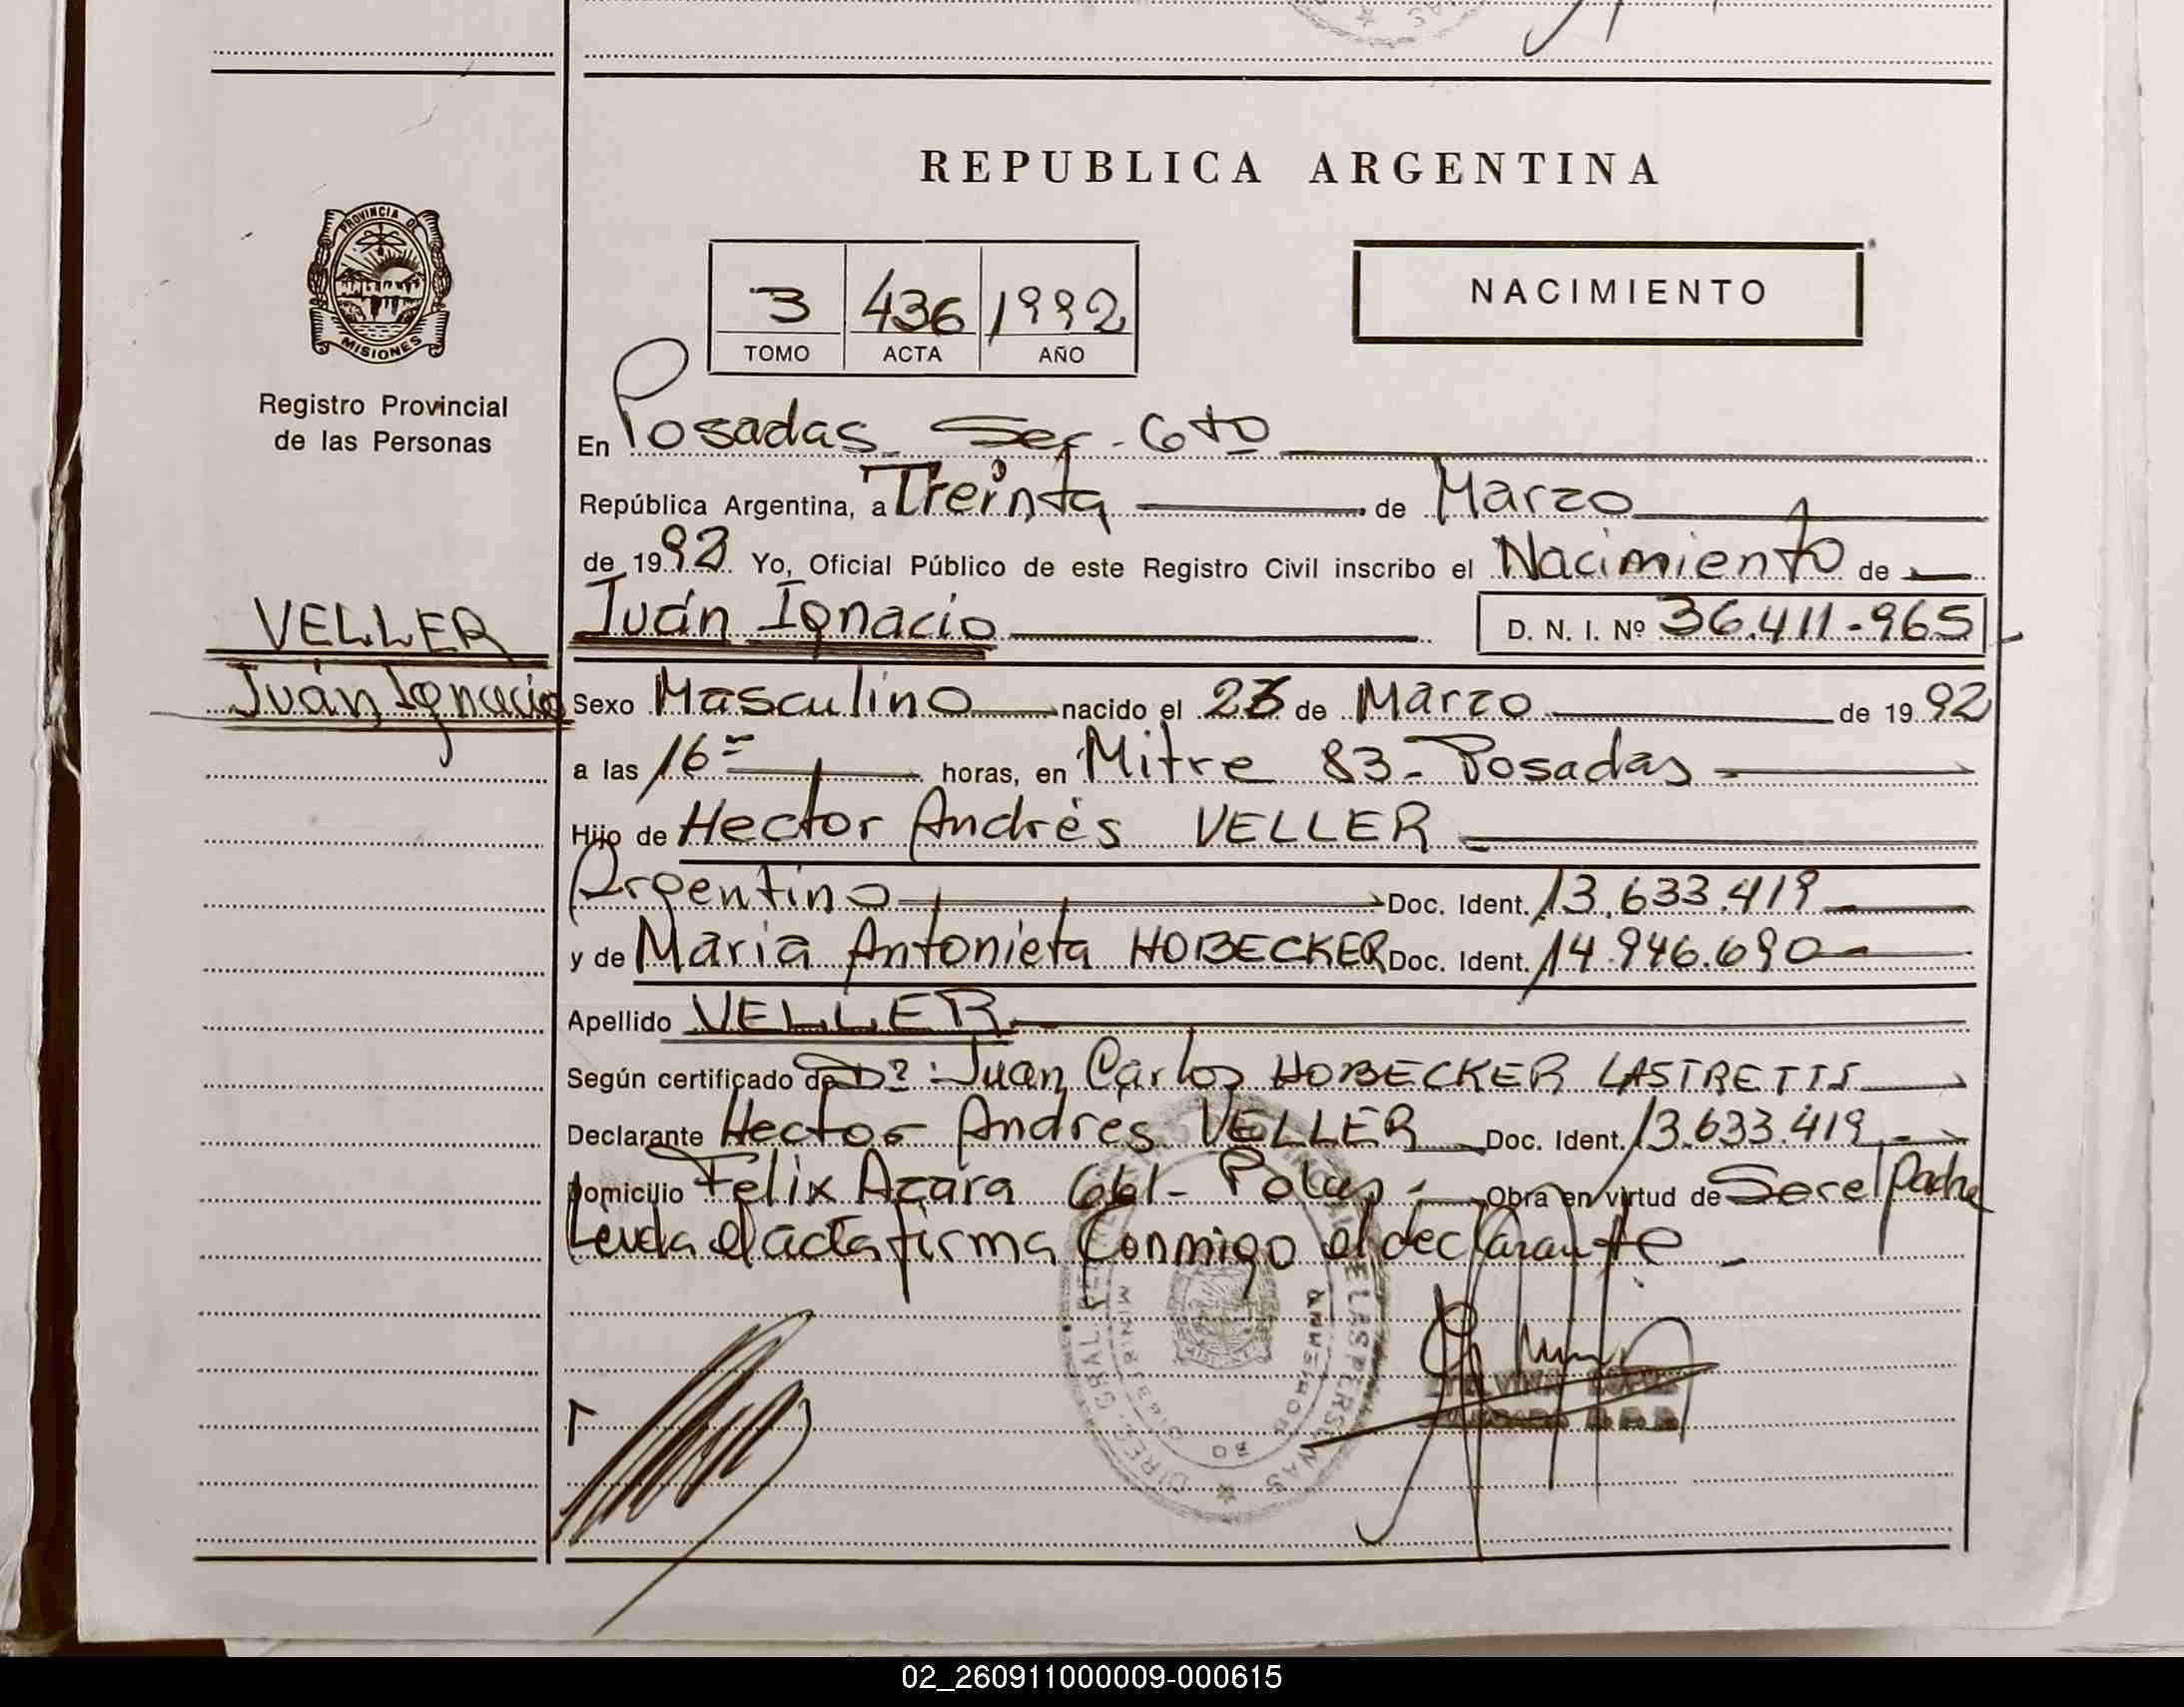 REPUBLICA ARGENTINA
PROVINCIA DE
MISIONES
Registro Provincial
de las Personas
NACIMIENTO
3 436 1992
TOMO ACTA AÑO
En Posadas Sec. 6to
República Argentina, a Treinta de Marzo
de 1992 Yo, Oficial Público de este Registro Civil inscribo el Nacimiento de
Juán Ignacio D. N. I. Nº 36.411.965
VELLER
Juán Ignacio
Sexo Masculino nacido el de Marzo de 1992
a las 16 horas, en Mitre 83 - Posadas
Hijo de Hector Andrés VELLER
Argentino Doc. Ident. 13.633.419
y de Maria Antonieta HOBECKER Doc. Ident. 14.946.690
Apellido VELLER
Según certificado de Juan Carlos HOBECKER LASTRETTI
Declarante Hector Andres VELLER Doc. Ident. 13.633.419
Domicilio Felix Azara 661 - Pdas - Obra en virtud de Ser el Padre
Leida el acta firma Conmigo el declarante
02_260911000009-000615